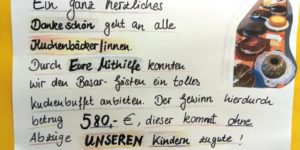 Ein ganz herzliches
Dankeschön geht an alle
Kuchenbäcker/innen
Durch Eure Mithilfe konnten
wir den Basar-Gästen ein tolles
Kuchenbuffet anbieten. Der Gewinn hierdurch
betrug 580,-€, dieser kommt ohne
Abzüge UNSEREN Kindern zugute!